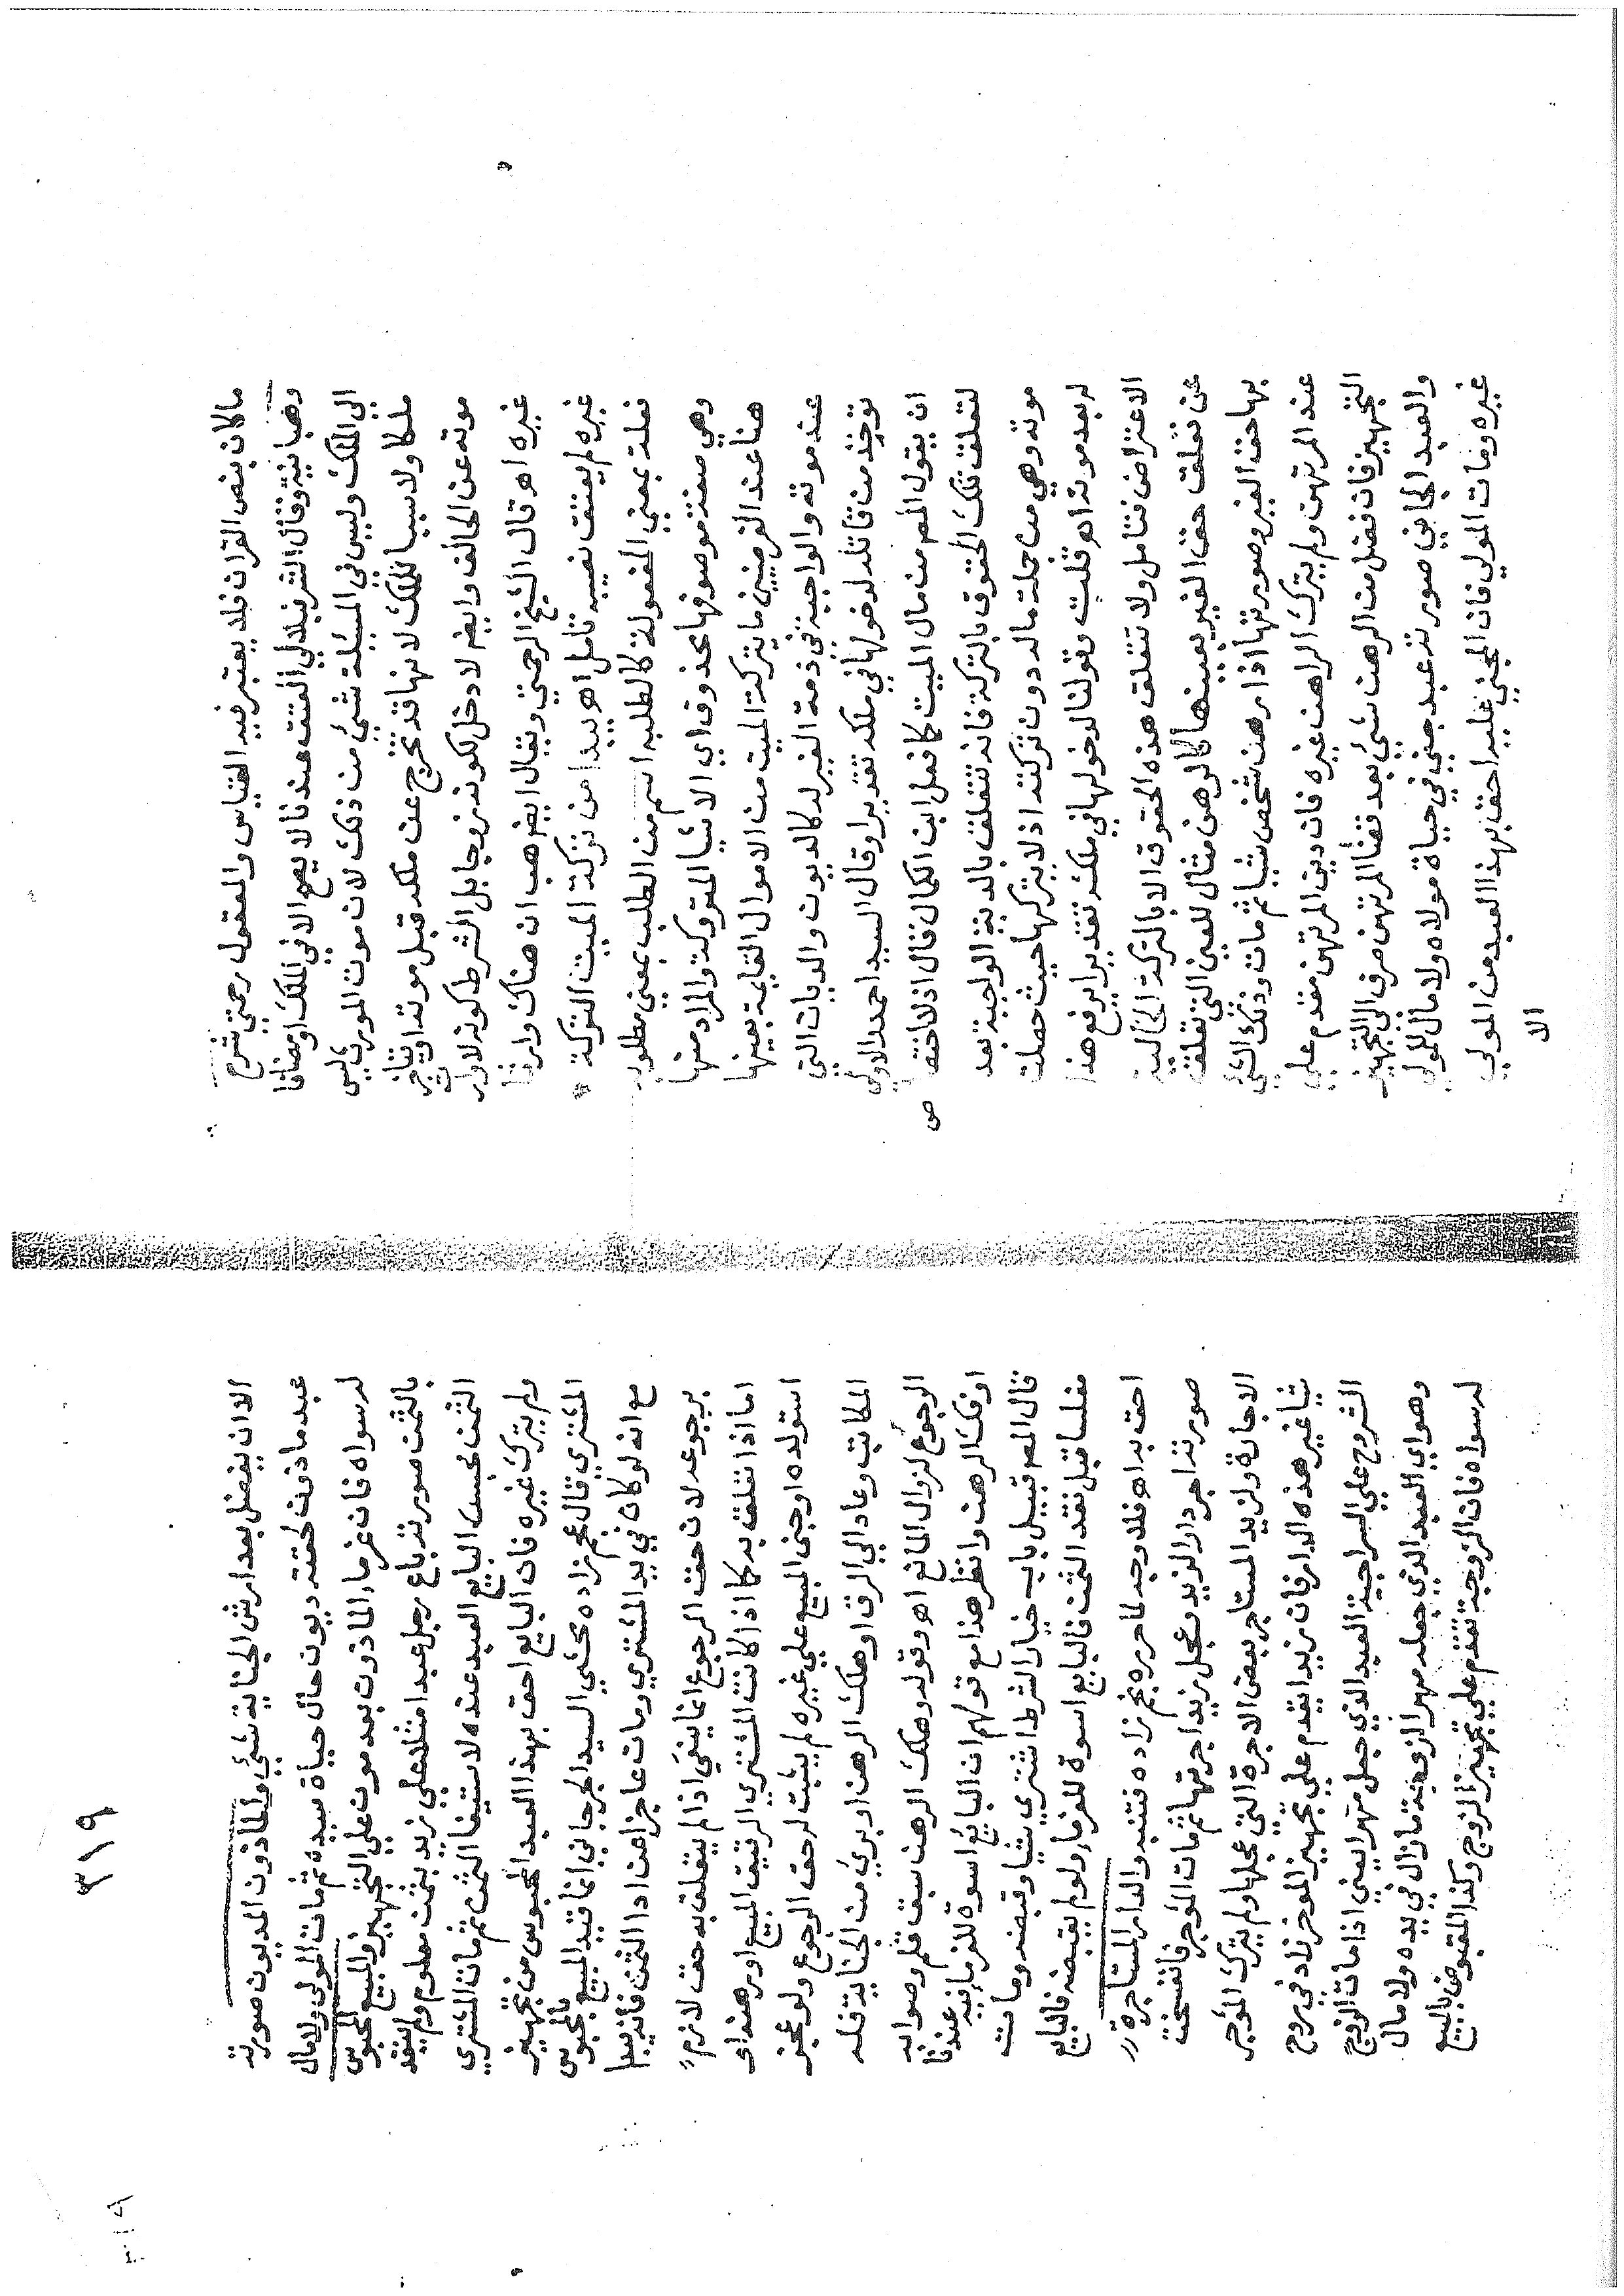 ما كان بنص القران فلا يعتبر فيه القياس والمعقول رحمتي شرح
وهبانية وقال الشرنبلالي العتق عندنا لا يصح الا في الملك او مضافا
الي الملك وليس في المسئلة شئ من ذلك لان موت المورث ليس
ملكا ولا سببا للملك لانها قد تخرج عن ملكه قبل موته او يتاخر
موته عن الحالف وايضا لا دخل لكونه زوجا بل الشرط كونه لا وارث
غيره اهـ قال الشيخ الرحمتي ويقال ايضا هب ان هناك وارثا
غيره لم يعتق نصيبه تامل اهـ يبدا من تركة الميت التركة
فعلة بمعني المفعولة كالطلبه اسم من الطلب بمعني مطلوب
وهي صفة موصوفها محذوف اي الاشيا المتروكة والمراد منها
هنا عند الفرضيين ما يتركه الميت من الاموال القايمة بعينها
عند موته والواجبة في ذمة الغير له كالديون والديات التي
توخذ من قاتله لدخولها في ملكه تقديرا وقال السيد احمد الاولي
ان يقول المص من مال الميت كما فعل ابن الكمال قال اذ لا اختصاص
لتعلق تلك الحقوق بالتركة فانه تتعلق بالدية الواجبة بعد
موته وهي من جملة ماله دون تركته اذ لا يتركها حيث حصلت
له بعد موته اهـ قلت وقولنا لدخولها في ملكه تقديرا يرفع هذا
الاعتراض فتامل ولا تتعلق هذه الحقوق الا بالتركة الخالية
عن تعلق حق الغير بعينها كالرهن مثال للعين التي تعلق
بها حق الغير وصورتها اذا رهن شخص شيا ثم مات وذلك الشئ
عند المرتهن ولم يترك الراهن غيره فان دين المرتهن مقدم علي
التجهيز فان فضل من الرهن شئ بعد قضا المرتهن صرف الي التجهيز
والعبد الجاني صورته عبد جني في حياة مولاه ولا مال للمولي
غيره ومات المولي فان المجني عليه احق بهذا العبد من المولي
الا
٣١٩
الا ان يفضل بعد ارش الجناية شئ والماذون المديون صورته
عبد ماذون لحقته ديون حال حياة سيده ثم مات المولي ولا مال
له سواه فان غرماء الماذون بعد موت علي التجهيز والمبيع المحبوس
بالثمن صورته باع رجل عبدا مثلا علي زيد بثمن معلوم ولم ينقد
الثمن فحبس البايع العبد عنده لاستيفا الثمن ثم مات المشتري
ولم يترك غيره فان البايع احق بهذا العبد المحبوس من تجهيز
المشتري قال عجم زاده محشي السيد الجرجاني انما قيد المبيع بالمحبوس
مع انه لو كان في يد المشتري ومات عاجزا عن ادا الثمن فانه يبدا
برجوعه لان حق الرجوع انما ينفي اذا لم يتعلق به حق لازم
اما اذا تعلق به كما اذا كانت المشتري الرقيق المبيع او رهنه او
استولده او جني المبيع علي غيره لم يثبت له حق الرجوع ولو عجز
المكاتب وعاد الي الرق او هلك الرهن او بري من الجناية فله
الرجوع لزوال المانع اهـ وقوله وهلك الرهن سبق قلم وصوابه
او فك الرهن وانظر هذا مع قولهم ان البايع اسوة للغرماء فيه عندنا
قال المص قبيل باب خيار الشرط اشتري شيا وقبضه ومات
مفلسا قبل نقد الثمن فالبايع اسوة للغرماء ولو لم يقبضه فالبايع
احق به اهـ فلا وجه لما حرره عجم زاده فتنبه والدار المستاجرة
صورته اجر دار الزيد وعجل زيد اجرتها ثم مات الموجر فانفسخت
الاجارة ولزيد المستاجر بعض الاجرة التي عجلها ولم يترك الموجر
شيا غير هذه الدار فان زيدا يقدم علي تجهيز الموجر زاد في روح
الشروح علي السراجية العبد الذي جعل مهرا يعني اذا مات الزوج
وهو اي العبد الذي جعله مهرا لزوجته ما زال في يده ولا مال
له سواه فان الزوجة تقدم علي تجهيز الزوج وكذا المقبوض بالبيع